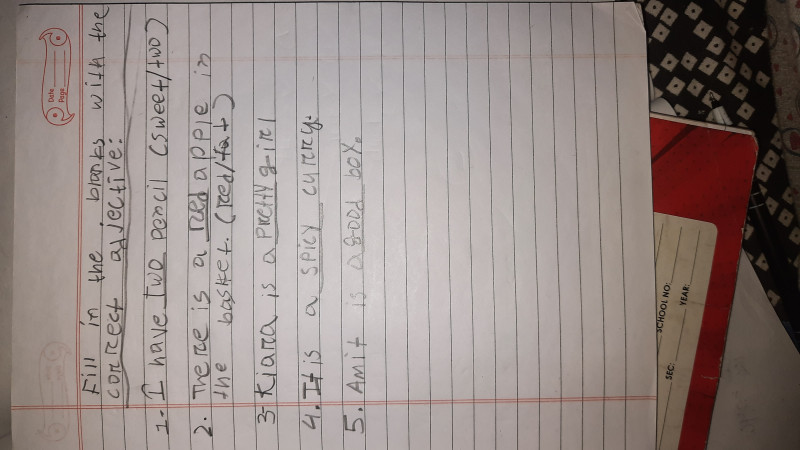 Date
Page
Fill in the blanks with the
correct adjective:
1- I have Two pencil (sweet/two)
2. There is a red apple in
the basket. (red/fat)
3- Kiara is a pretty girl
4. It is a spicy curry.
5. Amit is a good boy.
SCHOOL NO:
SEC:
YEAR: